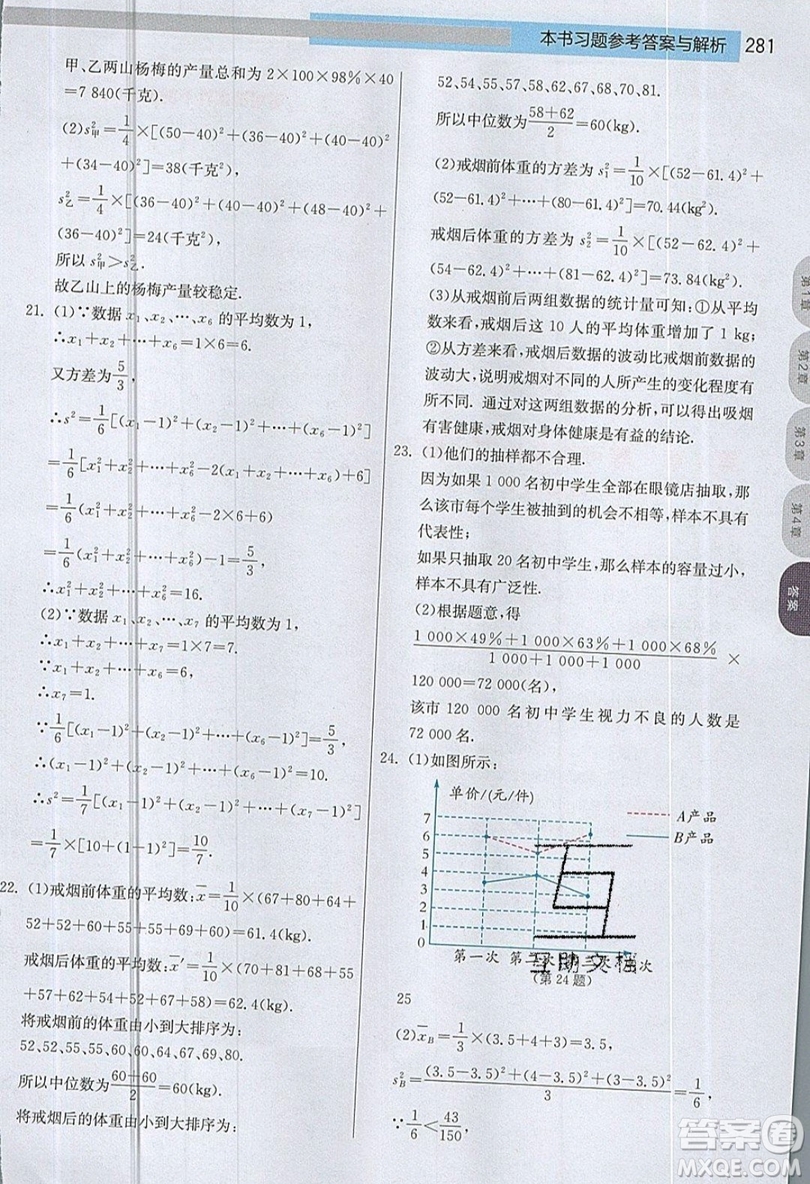 本书习题参考答案与解析 281
甲、乙两山杨梅的产量总和为 2×100×98%×40
=7 840(千克).
(2)s²甲=1/4×[(50-40)²+(36-40)²+(40-40)²
+(34-40)²]=38(千克²),
s²乙=1/4×[(36-40)²+(40-40)²+(48-40)²+
(36-40)²]=24(千克²),
所以 s²甲>s²乙.
故乙山上的杨梅产量较稳定.
21. (1)∵数据 x₁、x₂、…、x₆ 的平均数为 1,
∴x₁+x₂+…+x₆=1×6=6.
又方差为5/3,
∴s²=1/6[(x₁-1)²+(x₂-1)²+…+(x₆-1)²]
=1/6[x₁²+x₂²+…+x₆²-2(x₁+x₂+…+x₆)+6]
=1/6(x₁²+x₂²+…+x₆²-2×6+6)
=1/6(x₁²+x₂²+…+x₆²)-1=5/3,
∴x₁²+x₂²+…+x₆²=16.
(2)∵数据 x₁、x₂、…、x₇ 的平均数为 1,
∴x₁+x₂+…+x₇=1×7=7.
∵x₁+x₂+…+x₆=6,
∴x₇=1.
∵1/6[(x₁-1)²+(x₂-1)²+…+(x₆-1)²]=5/3,
∴(x₁-1)²+(x₂-1)²+…+(x₆-1)²=10.
∴s²=1/7[(x₁-1)²+(x₂-1)²+…+(x₇-1)²]
=1/7[10+(1-1)²]=10/7.
22. (1)戒烟前体重的平均数:x̄=1/10×(67+80+64+
52+52+60+55+54+69+60)=61.4(kg).
戒烟后体重的平均数:x̄′=1/10×(70+81+67+55
+57+62+54+52+68+58)=62.4(kg).
将戒烟前的体重由小到大排序为:
52,52,54,55,60,60,64,67,69,80.
所以中位数为(60+60)/2=60(kg).
将戒烟后的体重由小到大排序为:
52,54,55,57,58,62,67,68,70,81.
所以中位数为(58+62)/2=60(kg).
(2)戒烟前体重的方差为 s₁²=1/10×[(52-61.4)²+
(52-61.4)²+…+(80-61.4)²]=70.44(kg²).
戒烟后体重的方差为 s₂²=1/10×[(52-62.4)²+
(54-62.4)²+…+(81-62.4)²]=73.84(kg²).
(3)从戒烟前后两组数据的统计量可知:①从平均
数来看,戒烟后这 10 人的平均体重增加了 1 kg;
②从方差来看,戒烟后数据的波动比戒烟前数据的
波动大,说明戒烟对不同的人所产生的变化程度
有所不同. 通过对这两组数据的分析,可以得出吸烟
有害健康,戒烟对身体健康是有益的结论.
23. (1)他们的抽样都不合理.
因为如果 1 000 名初中学生全部在眼镜店抽取,那
么该市每个学生被抽到的机会不相等,样本不具有
代表性;
如果只抽取 20 名初中学生,那么样本的容量过小,
样本不具有广泛性.
(2)根据题意,得
(1 000×49%+1 000×63%+1 000×68%)/(1 000+1 000+1 000) ×
120 000=72 000(名),
该市 120 000 名初中学生视力不良的人数是
72 000 名.
24. (1)如图所示:
单价/(元/件)
7
6
5
4
3
2
1
0
A产品
B产品
第一次 第二次 第三次
(第 24 题)
互助文档
25
(2)x̄B=1/3×(3.5+4+3)=3.5,
s²B=[(3.5-3.5)²+(4-3.5)²+(3-3.5)²]/3=1/6,
∵1/6<43/150,
第1章
第2章
第3章
第4章
答案
答案圈
MXQE.COM